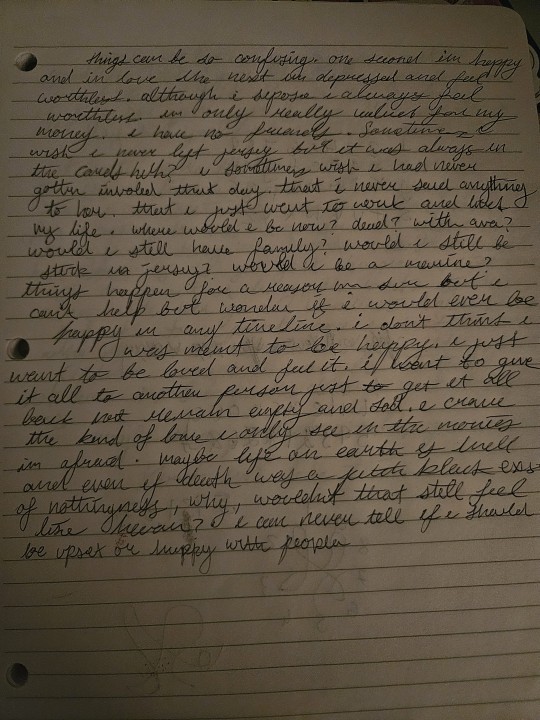 things can be so confusing. one second im happy
and in love the next im depressed and feel
worthless. although i sepose i always feel
worthless. im only really values for my
money. i have no friends. Sometimes i
wish i never left jersey but it was always in
the cards huh? i somttimes wish i had never
gotten involed that day. that i never said anything
to her. that i just went to work and lived
my life. where would i be now? dead? with ava?
would i still have family? would i still be
stuck in jersey? would i be a marine?
things happen for a reason im sure but i
can't help but wonder if i would ever be
happy in any timeline. i don't think i
was meant to be happy. i just
want to be loved and feel it. i want to give
it all to another person just to get it all
back not remain empty and sad. i crave
the kind of love i only see in the movies
im afraid. maybe life on earth is hell
and even if death was a pitch black
of nothingness, why, wouldn't that still feel
like heavan? i can never tell if i should
be upset or happy with people